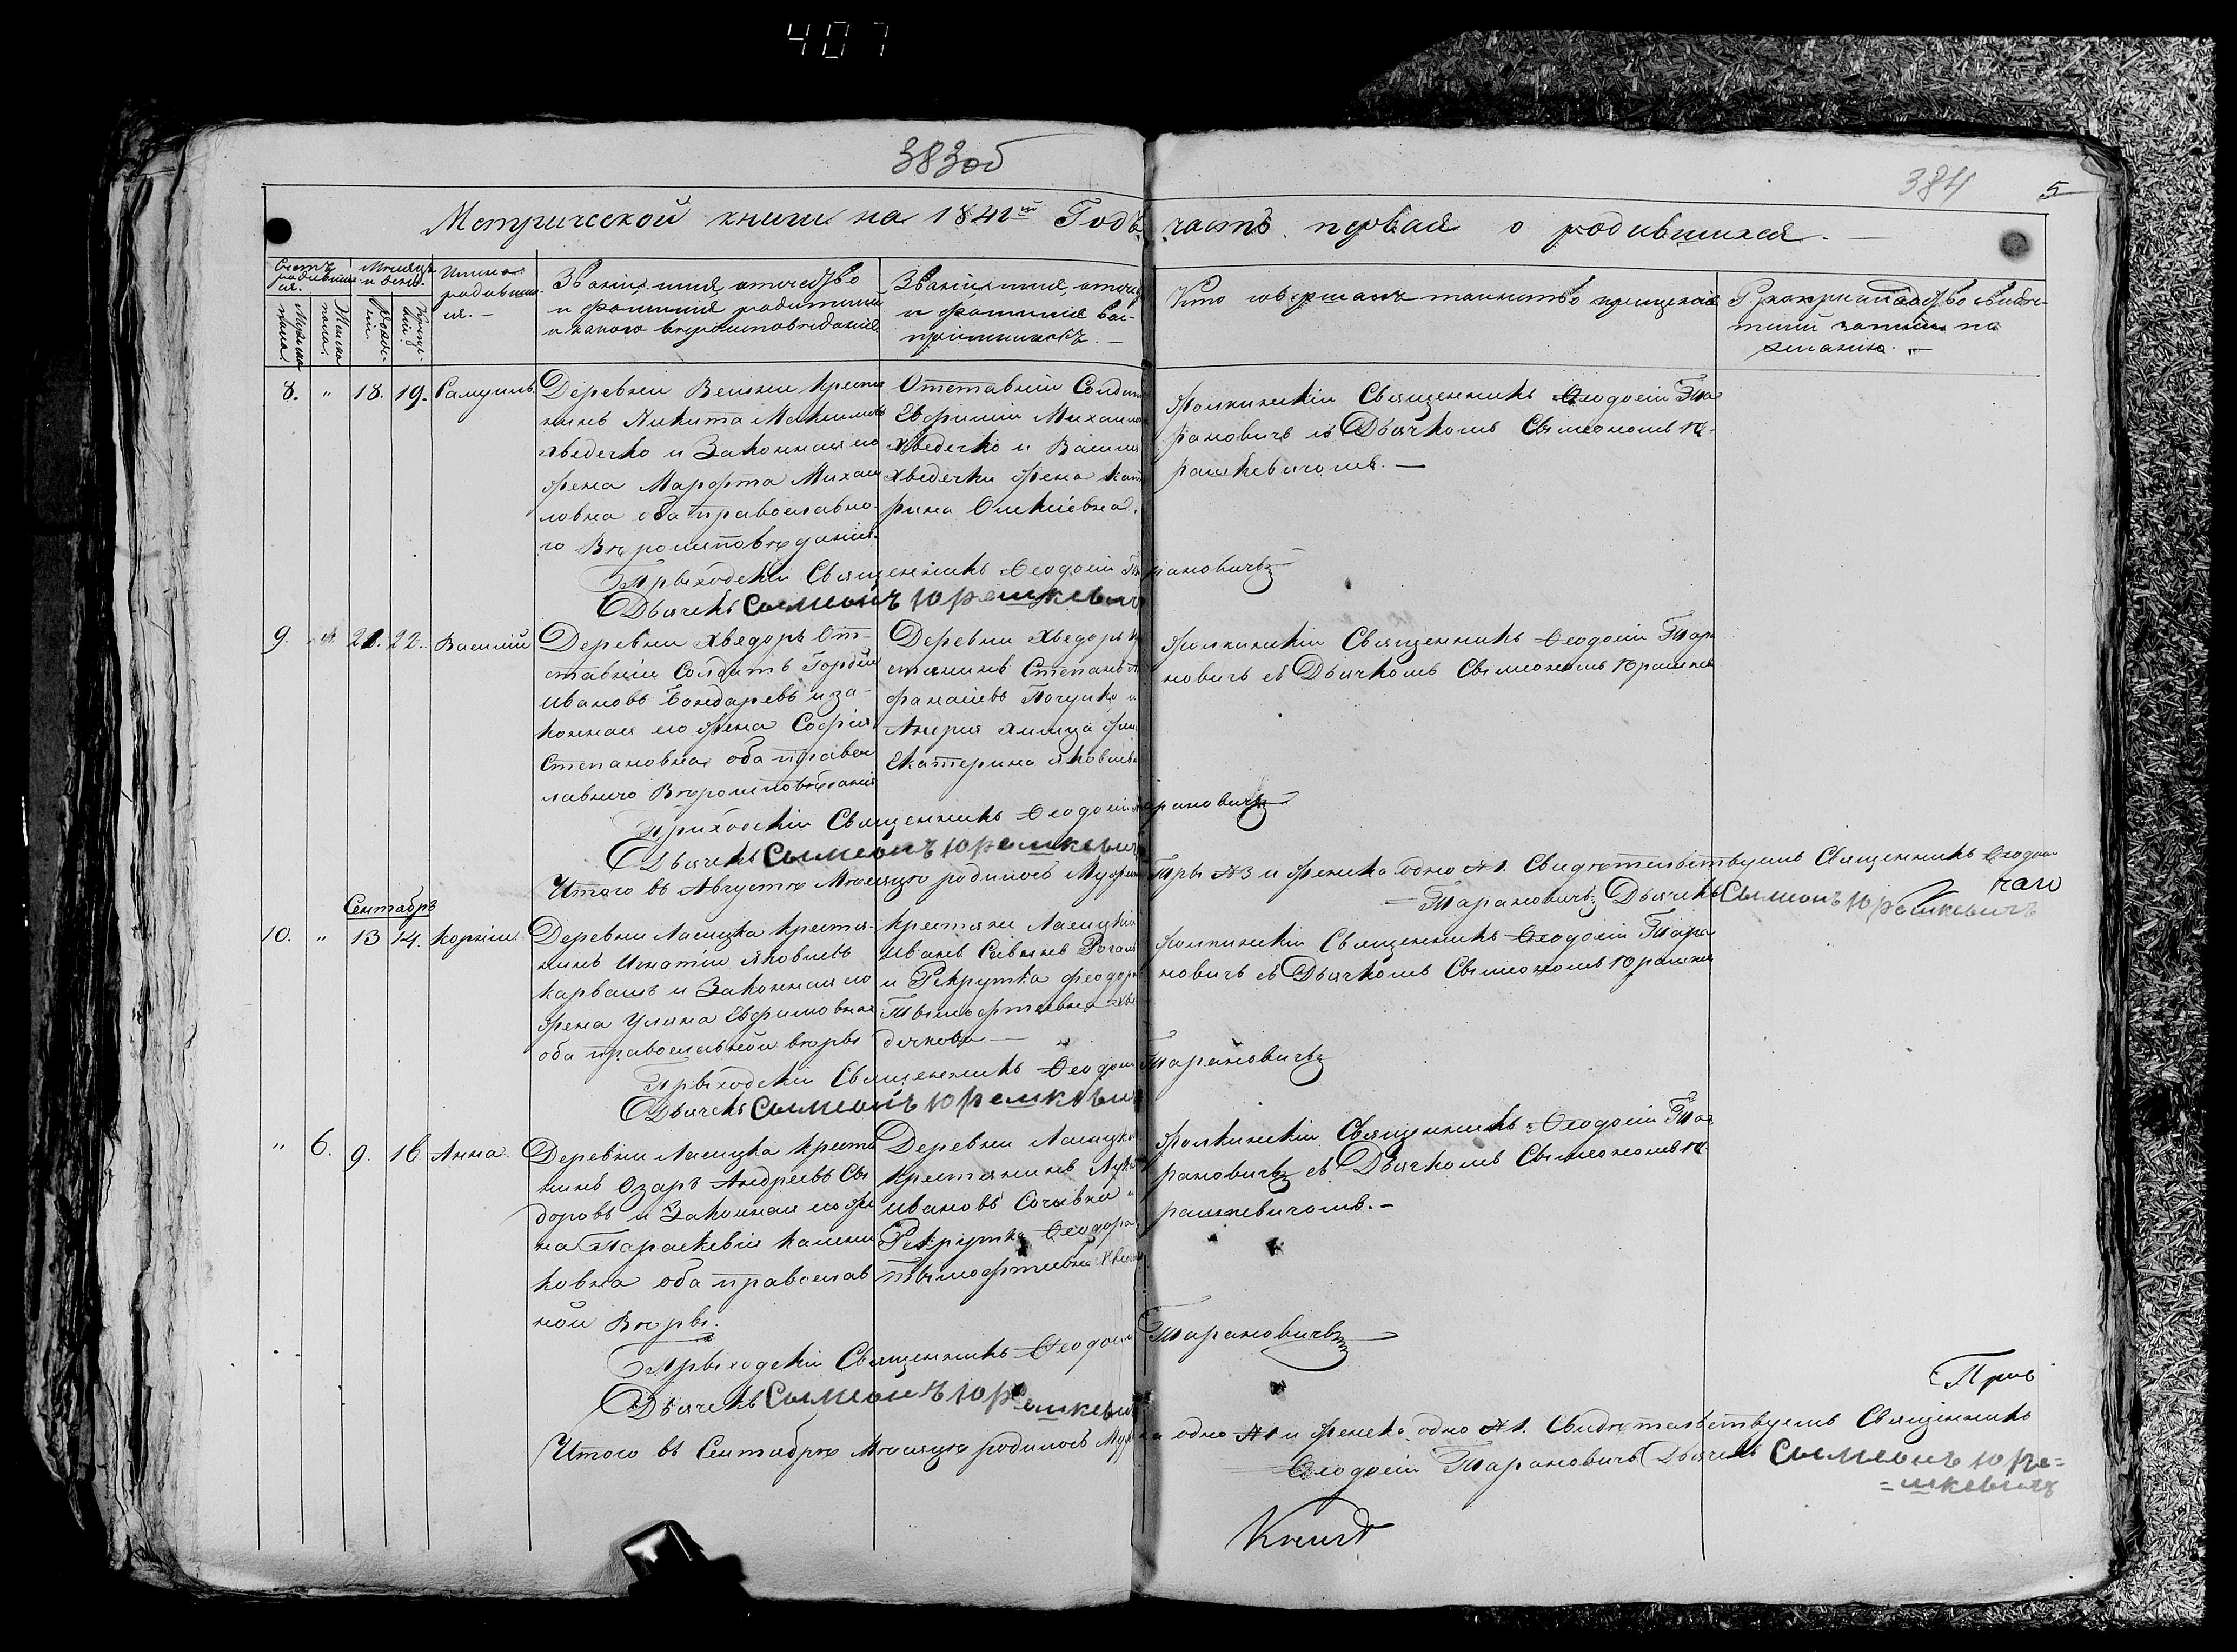 407
383об
384
5
Метрической книги на 1841й Годъ часть первая о родившихся. —
Счетъ родившихся.
Мужеска пола.
Женска пола.
Месяцъ и день.
рожденія
крещенія
Имена родившихся. —
Званіе, имя, отчество
и фамилія родителей
и какого вероисповеданія
Званіе, имя, отчес
и фамилія вос-
пріемниковъ. —
Кто совершалъ таинство крещенія
Рукоприкладство свиде-
телей записи по
желанію. —
8. " 18. 19. Самуилъ.
Деревни Велики Крестья
нинъ Никита Максимовъ
Хведечко и Законная его
жена Марфта Михаи
ловна оба православно
го Вероисповеданія.
Отставній Солдатъ
Евфимій Михаило
Хведечко и Васили
Хведечки жена Кате
рина Олекіевна.
Священникъ Феодосій Та
рановичъ съ Дьячкомъ Сымеономъ Ю-
рашкевичомъ. —
Прыходскій Священникъ Феодосій Тарановичъ
Дьячекъ Сымеонъ Юрашкевичъ
9. 21. 22. Василій
Деревни Хведоры От-
ставній Солдатъ Гордѣй
Ивановъ Бондаревъ и за-
конная его жена Софія
Степановна оба право
славнего Вероисповеданія
Деревни Хведоры к
стянинъ Степанъ
фанасіевъ Почупко и
Андрея Химица жена
Екатерина Яковлев
Священникъ Феодосій Тара
новичъ съ Дьячкомъ Сымеономъ Юрашке
Приходскій Священникъ Феодосій Тарановичъ
Дьячекъ Сымеонъ Юрашкевичъ
Итого въ Августе Месяце родилось Мужеска Три №3 и женска одно №1. Свидетельствуемъ Священникъ Феодосій
Тарановичъ Дьячекъ Сымеонъ Юрашкевичъ
Сентябрь
10. " 13 14. Корнилъ
Деревни Ласицка Крестья-
нинъ Игнатій Яковлевъ
Карвашъ и Законная его
жена Улина Евфимовна
оба православной веры
Крестяни Ласицкій
Иванъ Савинъ Рогач
и Рекрутка феодора
Тымофтеевна Хве
дечкова —
Священникъ Феодосій Тара
новичъ съ Дьячкомъ Сымеономъ Юрашке
Прыходскій Священникъ Феодосій Тарановичъ
Дьячекъ Сымеонъ Юрашкевичъ
" 6. 9. 16 Анна.
Деревни Ласицка Крестья
нинъ Озаръ Андреевъ Сы
доровъ и Законная его же
на Параскевія
ковна оба православ
ной Веры.
Деревни Ласицка
Крестянинъ Лука
Ивановъ Сочывка и
Рекрутка Феодора
Тымофтеевна Хве
Священникъ Феодосій Та
рановичъ съ Дьячкомъ Сымеономъ Ю
рашкевичомъ. —
Прыходскій Священникъ Феодосій Тарановичъ
Дьячекъ Сымеонъ Юрашкевичъ
Итого въ Сентябре Месяце родилось Мужеска одно №1 и женска одно №1. Свидетельствуемъ Священникъ
Феодосій Тарановичъ Дьячекъ Сымеонъ Юра=
=шкевичъ